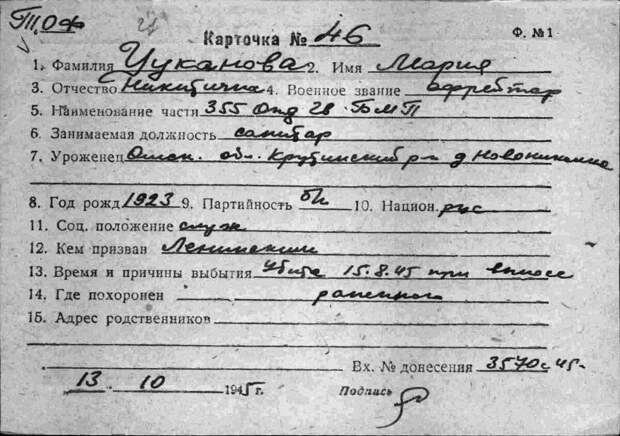 ТОФ
Карточка № 46 Ф. №1
1. Фамилия Цуканова 2. Имя Мария
3. Отчество Никитична 4. Военное звание ефрейтор
5. Наименование части 355 Опд Гв БМП
6. Занимаемая должность санитар
7. Уроженец Омск. обл. Крутинский р-н д Новониколька
8. Год рожд 1923 9. Партийность б/п 10. Национ. рус
11. Соц. положение служ
12. Кем призван Ленинским
13. Время и причины выбытия Убита 15.8.45 при выносе
14. Где похоронен раненного
15. Адрес родственников
Вх. № донесения 3570с 45г.
13 10 1945 г. Подпись